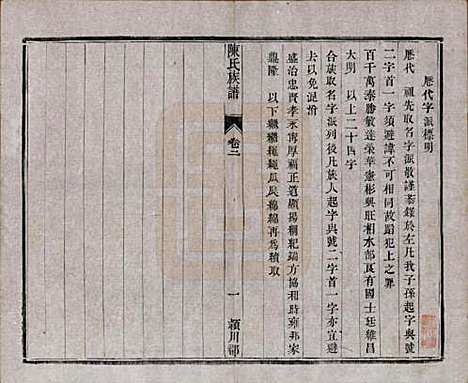 歷代字派標明
歷代 祖先取名字派敬謹錄於左凡我子孫起字與號
二字首一字須避諱不可相同故蹈犯上之罪
百千萬泰勝敏達榮華憲彬興旺相永郡良有國士廷維昌
大明 以上二十四字
合族取名字派列後凡族人起字與號二字首一字亦宜避
去以免混淆
盛治忠賢孝永壽厚福正道顯揚綱紀端方協和時雍邦家
熾隆 以下繩繩瓜瓞綿綿再為積取
陳氏族譜
卷二
一
潁川郡